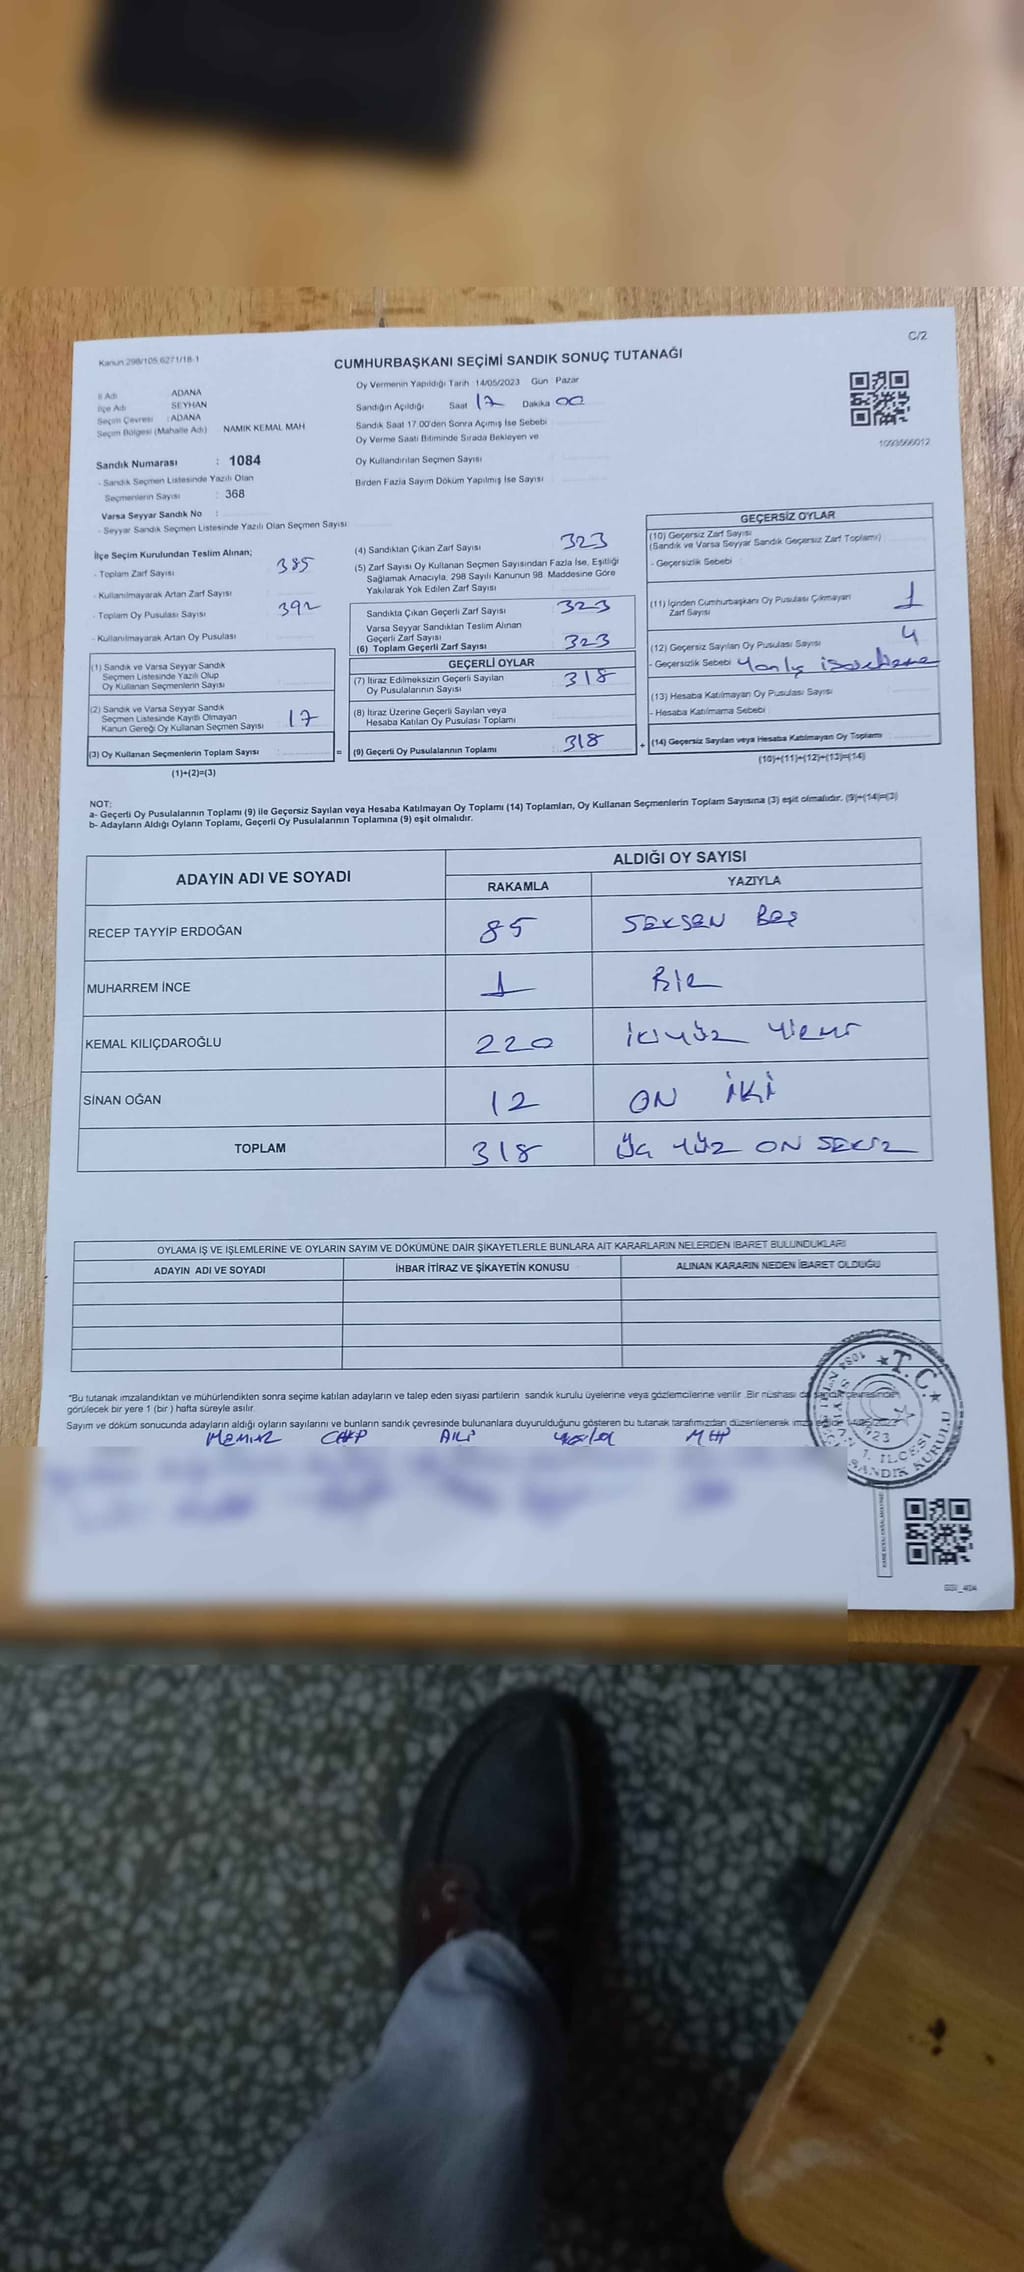 C/2
Kanun 298/105 6271/18-1
CUMHURBAŞKANI SEÇİMİ SANDIK SONUÇ TUTANAĞI
İl Adı ADANA
İlçe Adı SEYHAN
Seçim Çevresi : ADANA
Seçim Bölgesi (Mahalle Adı) NAMIK KEMAL MAH
Oy Vermenin Yapıldığı Tarih 14/05/2023 Gün Pazar
Sandığın Açıldığı Saat 17 Dakika 00
Sandık Saat 17.00'den Sonra Açımış İse Sebebi
Oy Verme Saati Bitiminde Sırada Bekleyen ve
Oy Kullandırılan Seçmen Sayısı
Birden Fazla Sayım Döküm Yapılmış İse Sayısı
1093566012
Sandık Numarası : 1084
- Sandık Seçmen Listesinde Yazılı Olan
Seçmenlerin Sayısı : 368
Varsa Seyyar Sandık No :
- Seyyar Sandık Seçmen Listesinde Yazılı Olan Seçmen Sayısı
İlçe Seçim Kurulundan Teslim Alınan;
- Toplam Zarf Sayısı 385
- Kullanılmayarak Artan Zarf Sayısı
- Toplam Oy Pusulası Sayısı 392
- Kullanılmayarak Artan Oy Pusulası
(1) Sandık ve Varsa Seyyar Sandık
Seçmen Listesinde Yazılı Olup
Oy Kullanan Seçmenlerin Sayısı
(2) Sandık ve Varsa Seyyar Sandık
Seçmen Listesinde Kayıtlı Olmayan
Kanun Gereği Oy Kullanan Seçmen Sayısı 17
(3) Oy Kullanan Seçmenlerin Toplam Sayısı =
(1)+(2)=(3)
(4) Sandıktan Çıkan Zarf Sayısı 323
(5) Zarf Sayısı Oy Kullanan Seçmen Sayısından Fazla İse, Eşitliği
Sağlamak Amacıyla, 298 Sayılı Kanunun 98. Maddesine Göre
Yakılarak Yok Edilen Zarf Sayısı
Sandıkta Çıkan Geçerli Zarf Sayısı 323
Varsa Seyyar Sandıktan Teslim Alınan
Geçerli Zarf Sayısı
(6) Toplam Geçerli Zarf Sayısı 323
GEÇERLİ OYLAR
(7) İtiraz Edilmeksizin Geçerli Sayılan
Oy Pusulalarının Sayısı 318
(8) İtiraz Üzerine Geçerli Sayılan veya
Hesaba Katılan Oy Pusulası Toplamı
(9) Geçerli Oy Pusulalarının Toplamı 318 +
GEÇERSİZ OYLAR
(10) Geçersiz Zarf Sayısı
(Sandık ve Varsa Seyyar Sandık Geçersiz Zarf Toplamı)
- Geçersizlik Sebebi
(11) İçinden Cumhurbaşkanı Oy Pusulası Çıkmayan
Zarf Sayısı 1
(12) Geçersiz Sayılan Oy Pusulası Sayısı 4
- Geçersizlik Sebebi Yanlış işaretleme
(13) Hesaba Katılmayan Oy Pusulası Sayısı
- Hesaba Katılmama Sebebi
(14) Geçersiz Sayılan veya Hesaba Katılmayan Oy Toplamı
(10)+(11)+(12)+(13)=(14)
NOT:
a- Geçerli Oy Pusulalarının Toplamı (9) ile Geçersiz Sayılan veya Hesaba Katılmayan Oy Toplamı (14) Toplamları, Oy Kullanan Seçmenlerin Toplam Sayısına (3) eşit olmalıdır. (9)+(14)=(3)
b- Adayların Aldığı Oyların Toplamı, Geçerli Oy Pusulalarının Toplamına (9) eşit olmalıdır.
ADAYIN ADI VE SOYADI ALDIĞI OY SAYISI
RAKAMLA YAZIYLA
RECEP TAYYİP ERDOĞAN 85 SEKSEN BEŞ
MUHARREM İNCE 1 BİR
KEMAL KILIÇDAROĞLU 220 İKİYÜZ YİRMİ
SİNAN OĞAN 12 ON İKİ
TOPLAM 318 ÜÇ YÜZ ON SEKİZ
OYLAMA İŞ VE İŞLEMLERİNE VE OYLARIN SAYIM VE DÖKÜMÜNE DAİR ŞİKAYETLERLE BUNLARA AİT KARARLARIN NELERDEN İBARET BULUNDUKLARI
ADAYIN ADI VE SOYADI İHBAR İTİRAZ VE ŞİKAYETİN KONUSU ALINAN KARARIN NEDEN İBARET OLDUĞU
*Bu tutanak imzalandıktan ve mühürlendikten sonra seçime katılan adayların ve talep eden siyasi partilerin sandık kurulu üyelerine veya gözlemcilerine verilir. Bir nüshası da sandık çevresinde
görülecek bir yere 1 (bir) hafta süreyle asılır.
Sayım ve döküm sonucunda adayların aldığı oyların sayılarını ve bunların sandık çevresinde bulunanlara duyurulduğunu gösteren bu tutanak tarafımızdan düzenlenerek imza edildi 14/05/2023
MHP
T.C.
1. İLÇESİ
SANDIK KURULU